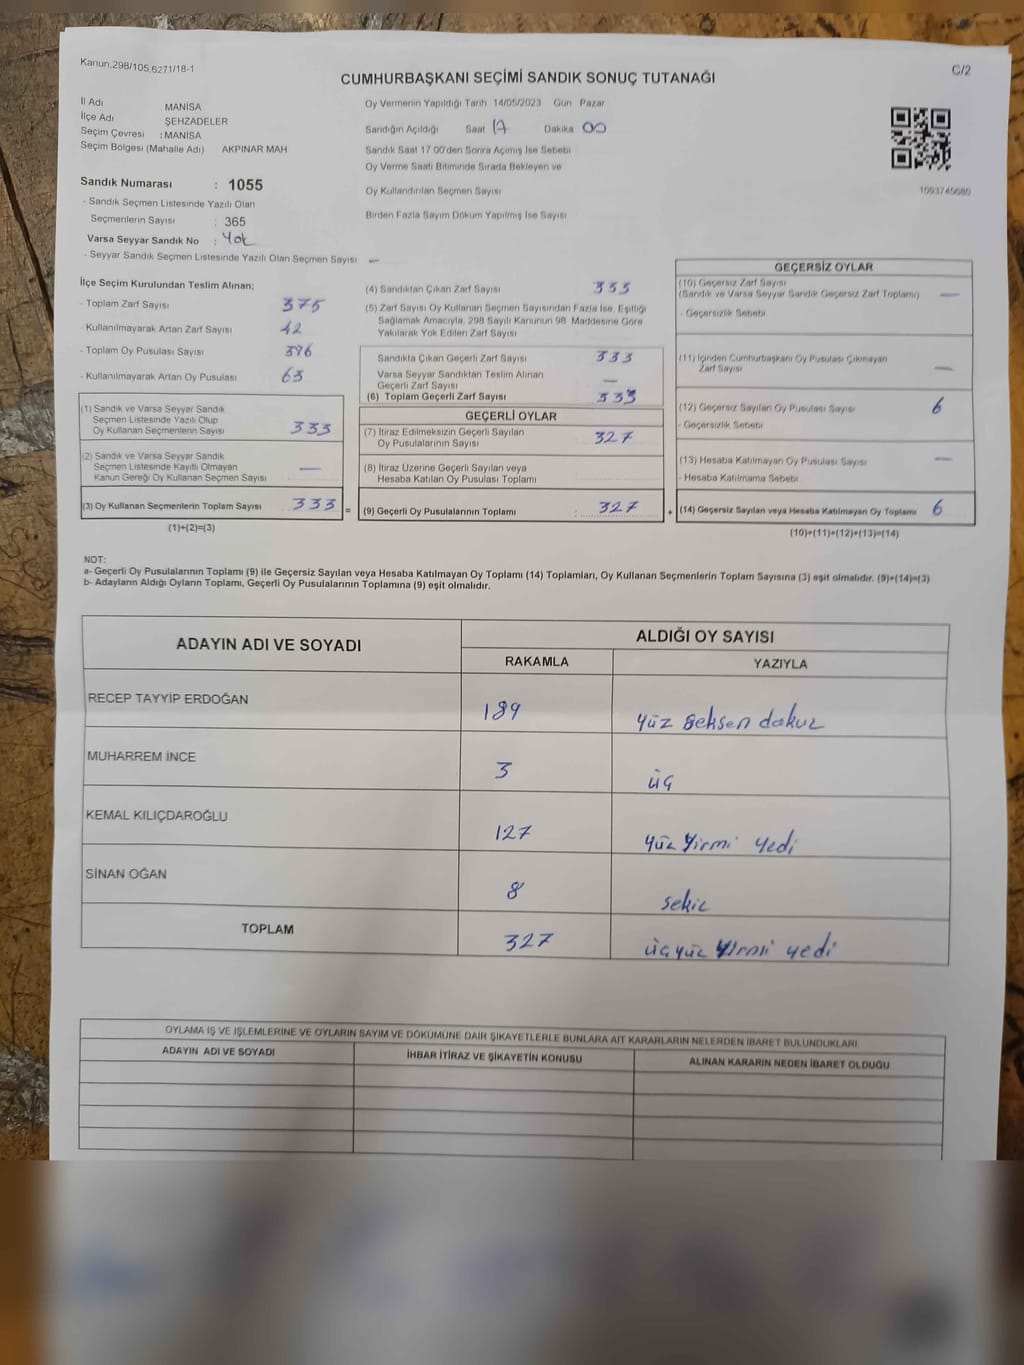 Kanun.298/105,6271/18-1
C/2
CUMHURBAŞKANI SEÇİMİ SANDIK SONUÇ TUTANAĞI
İl Adı MANİSA
İlçe Adı ŞEHZADELER
Seçim Çevresi : MANİSA
Seçim Bölgesi (Mahalle Adı) AKPINAR MAH
Sandık Numarası : 1055
- Sandık Seçmen Listesinde Yazılı Olan
Seçmenlerin Sayısı : 365
Varsa Seyyar Sandık No : Yok
- Seyyar Sandık Seçmen Listesinde Yazılı Olan Seçmen Sayısı —
Oy Vermenin Yapıldığı Tarih 14/05/2023 Gün Pazar
Sandığın Açıldığı Saat 17 Dakika 00
Sandık Saat 17.00'den Sonra Açımış İse Sebebi
Oy Verme Saati Bitiminde Sırada Bekleyen ve
Oy Kullandırılan Seçmen Sayısı
Birden Fazla Sayım Döküm Yapılmış İse Sayısı
1093745685
İlçe Seçim Kurulundan Teslim Alınan;
- Toplam Zarf Sayısı 375
- Kullanılmayarak Artan Zarf Sayısı 42
- Toplam Oy Pusulası Sayısı 396
- Kullanılmayarak Artan Oy Pusulası 63
(1) Sandık ve Varsa Seyyar Sandık
Seçmen Listesinde Yazılı Olup
Oy Kullanan Seçmenlerin Sayısı 333
(2) Sandık ve Varsa Seyyar Sandık
Seçmen Listesinde Kayıtlı Olmayan
Kanun Gereği Oy Kullanan Seçmen Sayısı —
(3) Oy Kullanan Seçmenlerin Toplam Sayısı 333 =
(1)+(2)=(3)
(4) Sandıktan Çıkan Zarf Sayısı 333
(5) Zarf Sayısı Oy Kullanan Seçmen Sayısından Fazla İse, Eşitliği
Sağlamak Amacıyla, 298 Sayılı Kanunun 98. Maddesine Göre
Yakılarak Yok Edilen Zarf Sayısı
Sandıkta Çıkan Geçerli Zarf Sayısı 333
Varsa Seyyar Sandıktan Teslim Alınan
Geçerli Zarf Sayısı —
(6) Toplam Geçerli Zarf Sayısı 333
GEÇERLİ OYLAR
(7) İtiraz Edilmeksizin Geçerli Sayılan
Oy Pusulalarının Sayısı 327
(8) İtiraz Üzerine Geçerli Sayılan veya
Hesaba Katılan Oy Pusulası Toplamı
(9) Geçerli Oy Pusulalarının Toplamı : 327 +
GEÇERSİZ OYLAR
(10) Geçersiz Zarf Sayısı
(Sandık ve Varsa Seyyar Sandık Geçersiz Zarf Toplamı) —
- Geçersizlik Sebebi
(11) İçinden Cumhurbaşkanı Oy Pusulası Çıkmayan
Zarf Sayısı —
(12) Geçersiz Sayılan Oy Pusulası Sayısı 6
- Geçersizlik Sebebi
(13) Hesaba Katılmayan Oy Pusulası Sayısı —
- Hesaba Katılmama Sebebi
(14) Geçersiz Sayılan veya Hesaba Katılmayan Oy Toplamı 6
(10)+(11)+(12)+(13)=(14)
NOT:
a- Geçerli Oy Pusulalarının Toplamı (9) ile Geçersiz Sayılan veya Hesaba Katılmayan Oy Toplamı (14) Toplamları, Oy Kullanan Seçmenlerin Toplam Sayısına (3) eşit olmalıdır. (9)+(14)=(3)
b- Adayların Aldığı Oyların Toplamı, Geçerli Oy Pusulalarının Toplamına (9) eşit olmalıdır.
ADAYIN ADI VE SOYADI ALDIĞI OY SAYISI
RAKAMLA YAZIYLA
RECEP TAYYİP ERDOĞAN 189 yüz seksen dokuz
MUHARREM İNCE 3 üç
KEMAL KILIÇDAROĞLU 127 yüz yirmi yedi
SİNAN OĞAN 8 sekiz
TOPLAM 327 üçyüz yirmi yedi
OYLAMA İŞ VE İŞLEMLERİNE VE OYLARIN SAYIM VE DÖKÜMÜNE DAİR ŞİKAYETLERLE BUNLARA AİT KARARLARIN NELERDEN İBARET BULUNDUKLARI
ADAYIN ADI VE SOYADI İHBAR İTİRAZ VE ŞİKAYETİN KONUSU ALINAN KARARIN NEDEN İBARET OLDUĞU